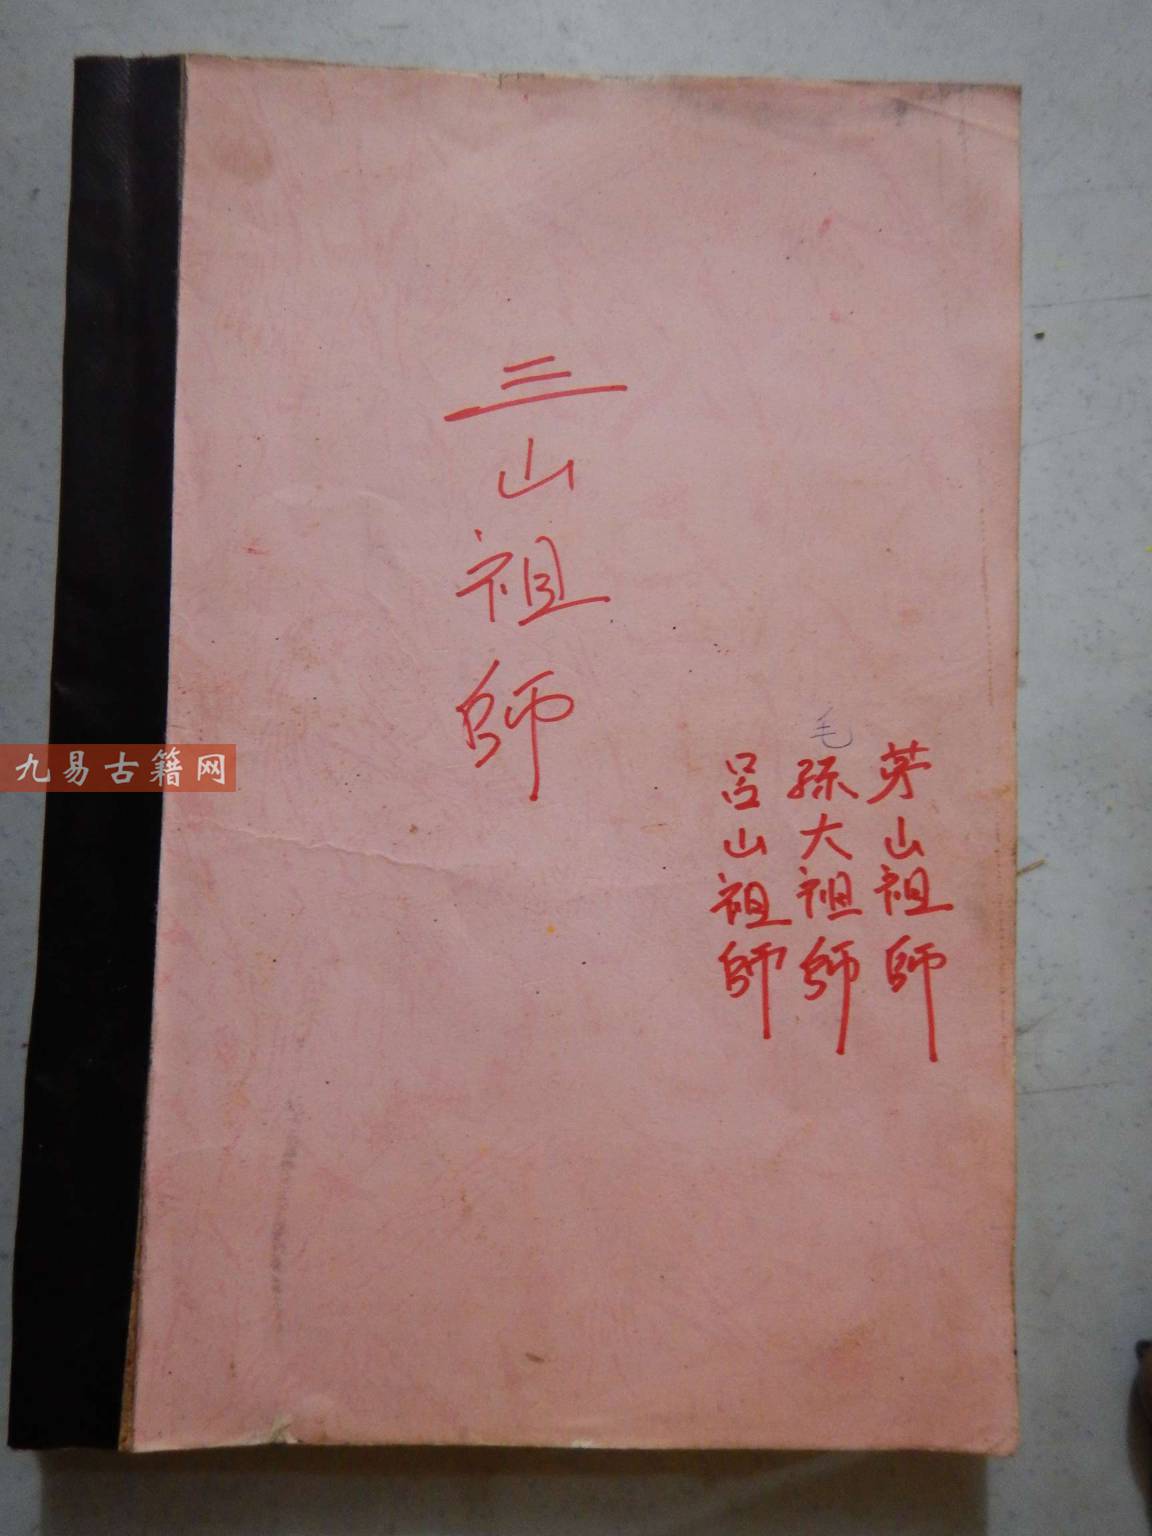 三山祖師
茅山祖師
毛
孫大祖師
呂山祖師
九易古籍网